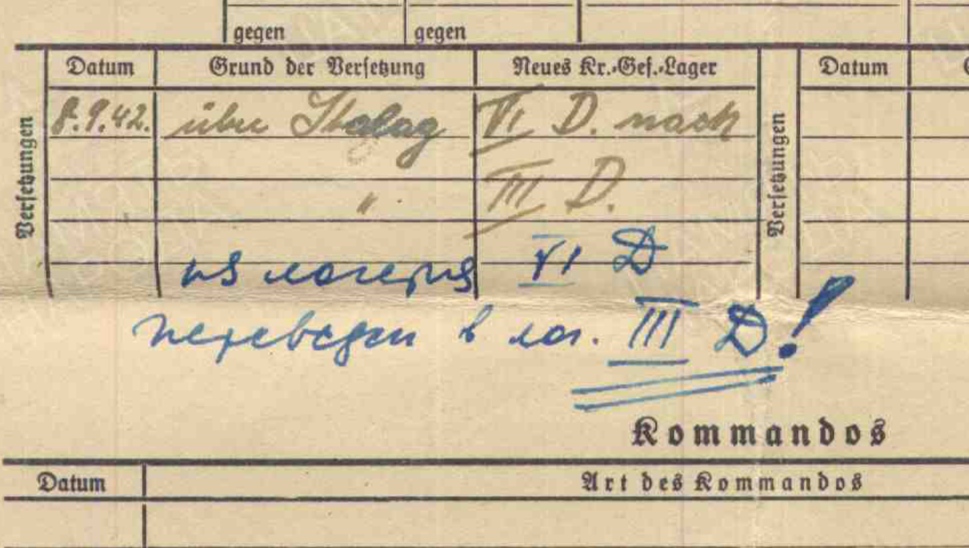 gegen gegen
Versetzungen Datum Grund der Versetzung Neues Kr.-Gef.-Lager Versetzungen Datum
8.9.42. über Stalag VI D. nach
" III D.
из лагеря VI D
переведен в лаг. III D!
Kommandos
Datum Art des Kommandos